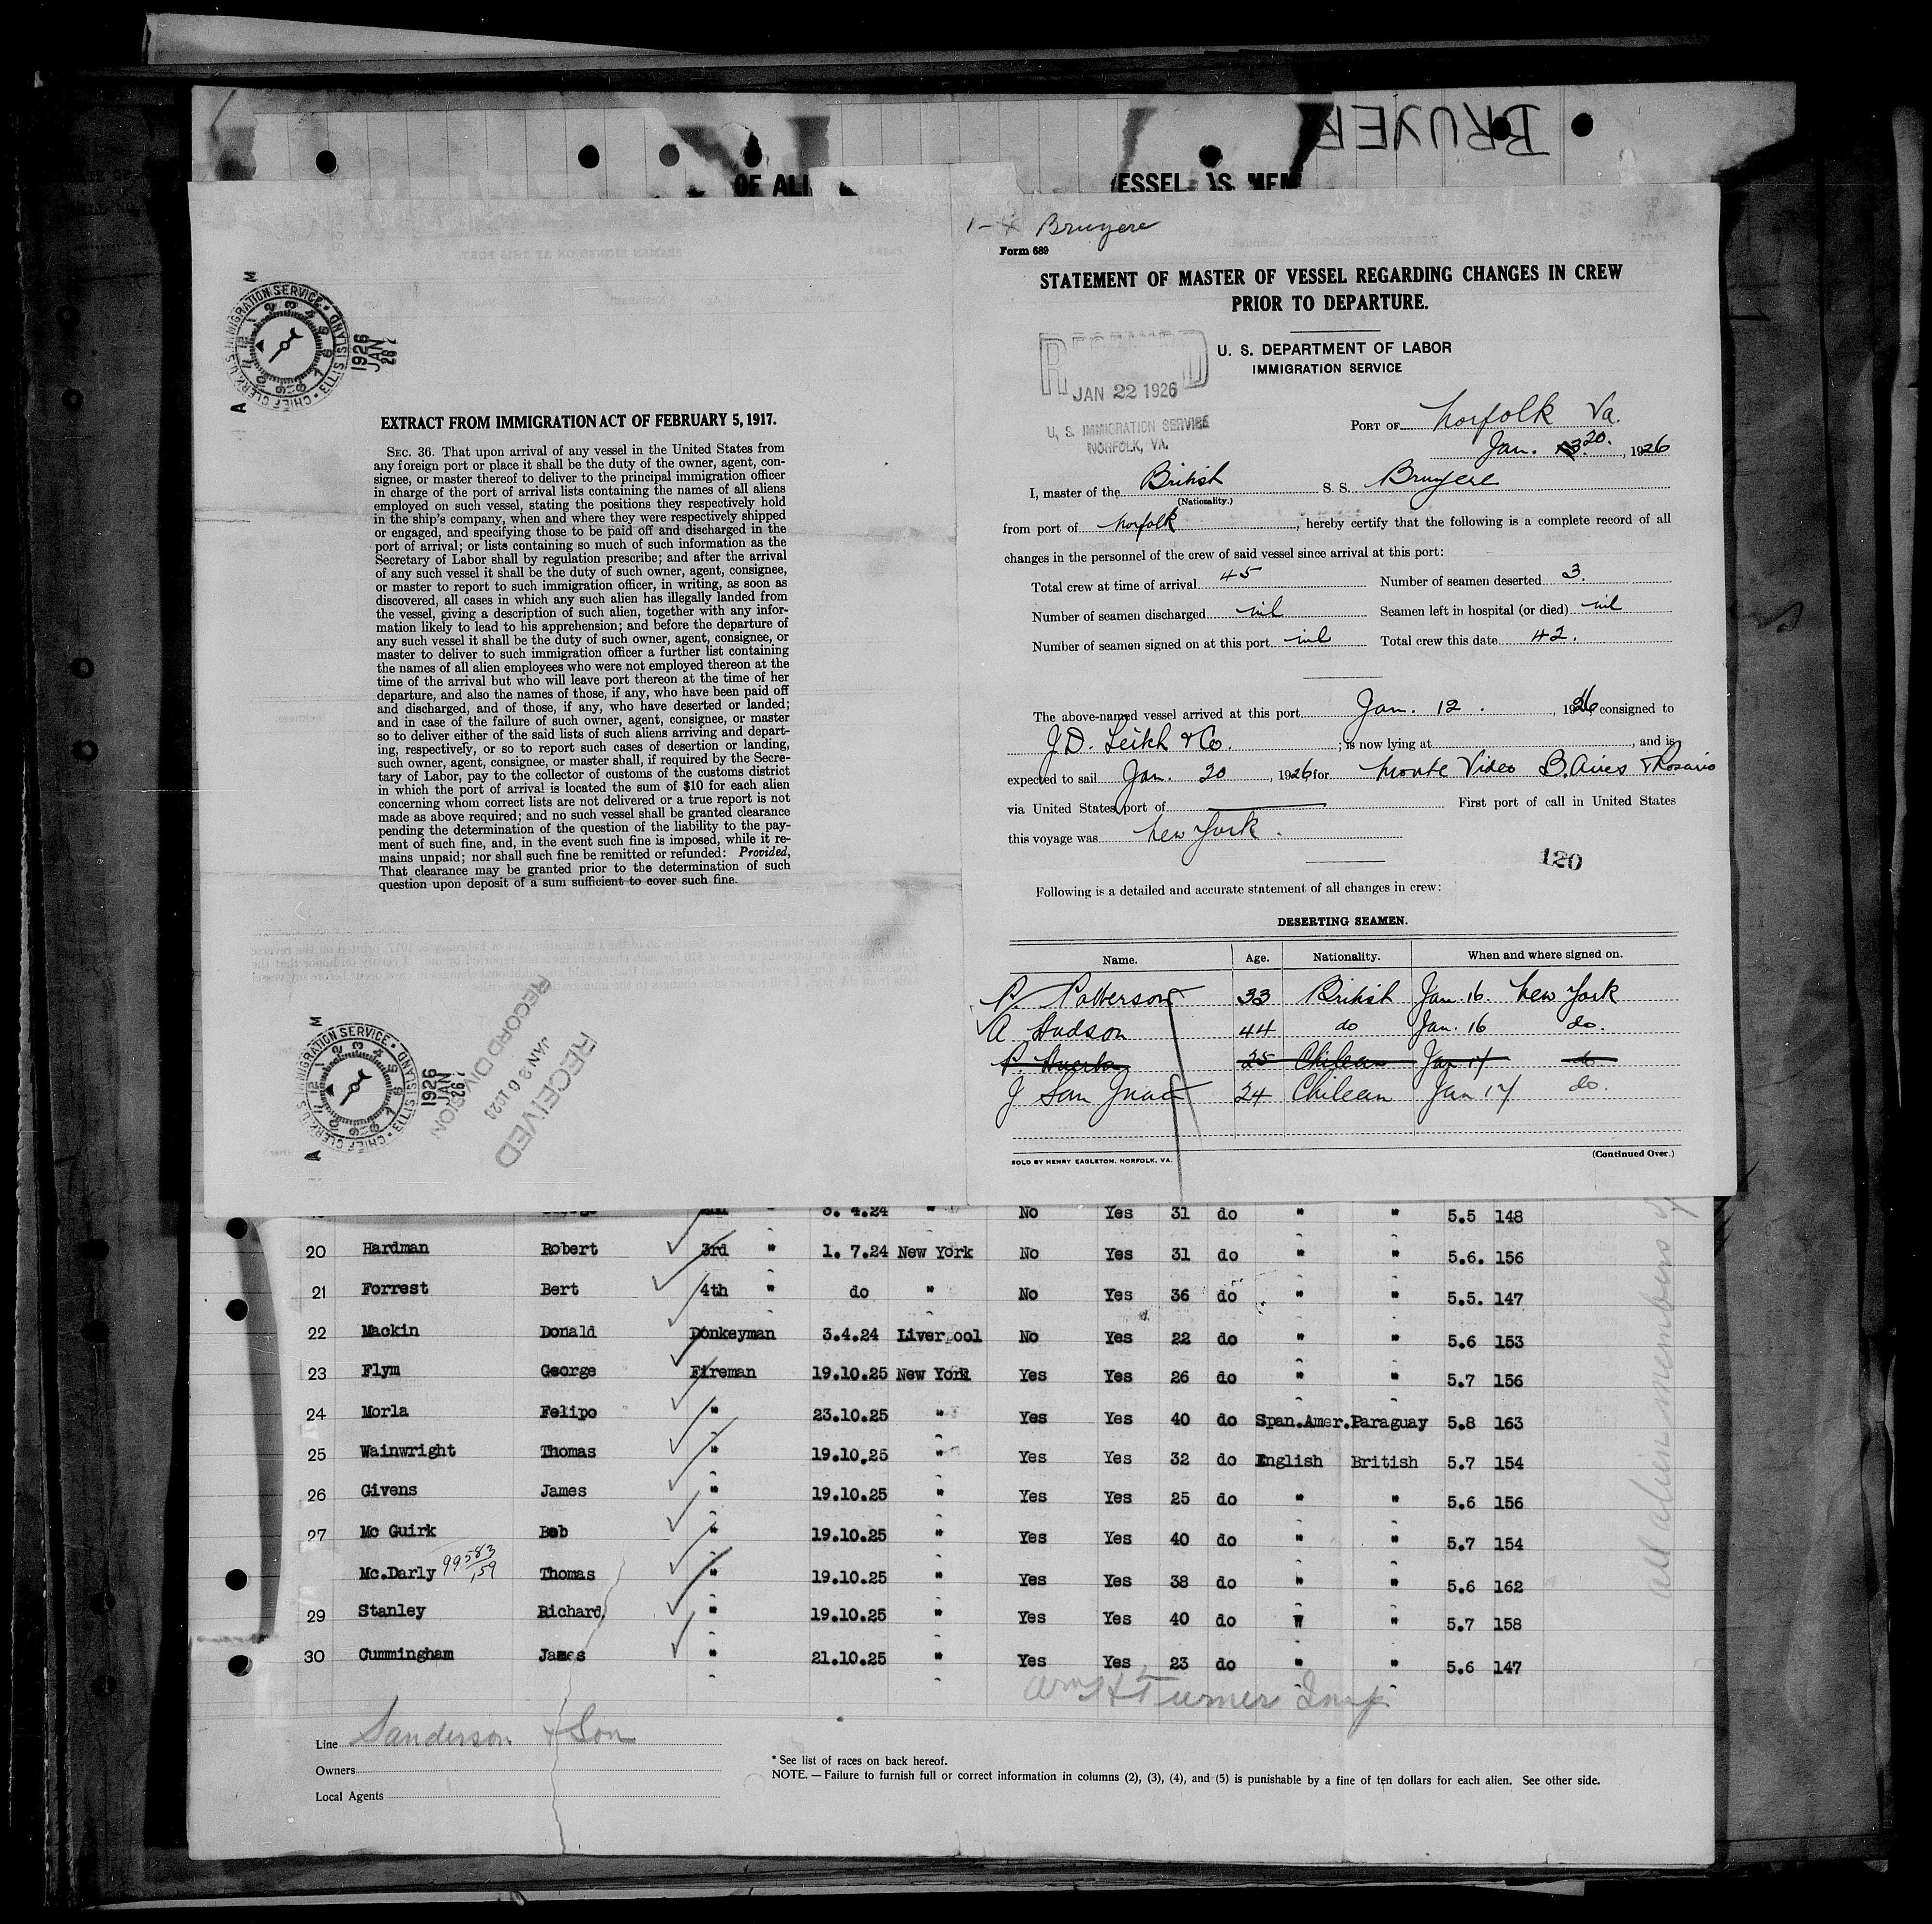 BRUYER
OF ALI
ESSEL AS MEM
EXTRACT FROM IMMIGRATION ACT OF FEBRUARY 5, 1917.
SEC. 36. That upon arrival of any vessel in the United States from
any foreign port or place it shall be the duty of the owner, agent, con-
signee, or master thereof to deliver to the principal immigration officer
in charge of the port of arrival lists containing the names of all aliens
employed on such vessel, stating the positions they respectively hold
in the ship's company, when and where they were respectively shipped
or engaged, and specifying those to be paid off and discharged in the
port of arrival; or lists containing so much of such information as the
Secretary of Labor shall by regulation prescribe; and after the arrival
of any such vessel it shall be the duty of such owner, agent, consignee,
or master to report to such immigration officer, in writing, as soon as
discovered, all cases in which any such alien has illegally landed from
the vessel, giving a description of such alien, together with any infor-
mation likely to lead to his apprehension; and before the departure of
any such vessel it shall be the duty of such owner, agent, consignee, or
master to deliver to such immigration officer a further list containing
the names of all alien employees who were not employed thereon at the
time of the arrival but who will leave port thereon at the time of her
departure, and also the names of those, if any, who have been paid off
and discharged, and of those, if any, who have deserted or landed;
and in case of the failure of such owner, agent, consignee, or master
so to deliver either of the said lists of such aliens arriving and depart-
ing, respectively, or so to report such cases of desertion or landing,
such owner, agent, consignee, or master shall, if required by the Secre-
tary of Labor, pay to the collector of customs of the customs district
in which the port of arrival is located the sum of $10 for each alien
concerning whom correct lists are not delivered or a true report is not
made as above required; and no such vessel shall be granted clearance
pending the determination of the question of the liability to the pay-
ment of such fine, and, in the event such fine is imposed, while it re-
mains unpaid; nor shall such fine be remitted or refunded: Provided,
That clearance may be granted prior to the determination of such
question upon deposit of a sum sufficient to cover such fine.
CHIEF CLERK, U.S. IMMIGRATION SERVICE · ELLIS ISLAND
1926 JAN 26
CHIEF CLERK, U.S. IMMIGRATION SERVICE · ELLIS ISLAND
1926 JAN 26
RECEIVED
JAN 30
RECORD DIVISION
1-4 Bruyere
Form 689
STATEMENT OF MASTER OF VESSEL REGARDING CHANGES IN CREW
PRIOR TO DEPARTURE.
U. S. DEPARTMENT OF LABOR
IMMIGRATION SERVICE
RECEIVED
JAN 22 1926
U. S. IMMIGRATION SERVICE
NORFOLK, VA.
PORT OF Norfolk Va.
Jan. 20., 1926
I, master of the British S. S. Bruyere
(Nationality.)
from port of Norfolk, hereby certify that the following is a complete record of all
changes in the personnel of the crew of said vessel since arrival at this port:
Total crew at time of arrival 45 Number of seamen deserted 3.
Number of seamen discharged nil Seamen left in hospital (or died) nil
Number of seamen signed on at this port nil Total crew this date 42.
The above-named vessel arrived at this port Jan. 12., 1926 consigned to
J.D. Leikh & Co.; is now lying at , and is
expected to sail Jan. 20, 1926 for Monte Video B. Aires & Rosario
via United States port of First port of call in United States
this voyage was New York.
120
Following is a detailed and accurate statement of all changes in crew:
DESERTING SEAMEN.
Name. Age. Nationality. When and where signed on.
P. Patterson 33 British Jan. 16. New York
A Hudson 44 do Jan. 16 do.
P. Huerta 25 Chilean Jan 17 do
J San Juan 24 Chilean Jan 17 do.
SOLD BY HENRY EAGLETON, NORFOLK, VA.
(Continued Over.)
3. 4.24 " No Yes 31 do " " 5.5 148
20 Hardman Robert 3rd " 1. 7.24 New York No Yes 31 do " " 5.6. 156
21 Forrest Bert 4th " do " No Yes 36 do " " 5.5. 147
22 Mackin Donald Donkeyman 3.4.24 Liverpool No Yes 22 do " " 5.6 153
23 Flym George Fireman 19.10.25 New York Yes Yes 26 do " " 5.7 156
24 Morla Felipo " 23.10.25 " Yes Yes 40 do Span.Amer. Paraguay 5.8 163
25 Wainwright Thomas " 19.10.25 " Yes Yes 32 do English British 5.7 154
26 Givens James " 19.10.25 " Yes Yes 25 do " " 5.6 156
27 Mc Guirk Bob " 19.10.25 " Yes Yes 40 do " " 5.7 154
Mc.Darly 99583/159 Thomas " 19.10.25 " Yes Yes 38 do " " 5.6 162
29 Stanley Richard " 19.10.25 " Yes Yes 40 do " " 5.7 158
30 Cummingham James " 21.10.25 " Yes Yes 23 do " " 5.6 147
Turner Insp
all alien members of
Line Sanderson & Son
Owners
Local Agents
* See list of races on back hereof.
NOTE.—Failure to furnish full or correct information in columns (2), (3), (4), and (5) is punishable by a fine of ten dollars for each alien. See other side.